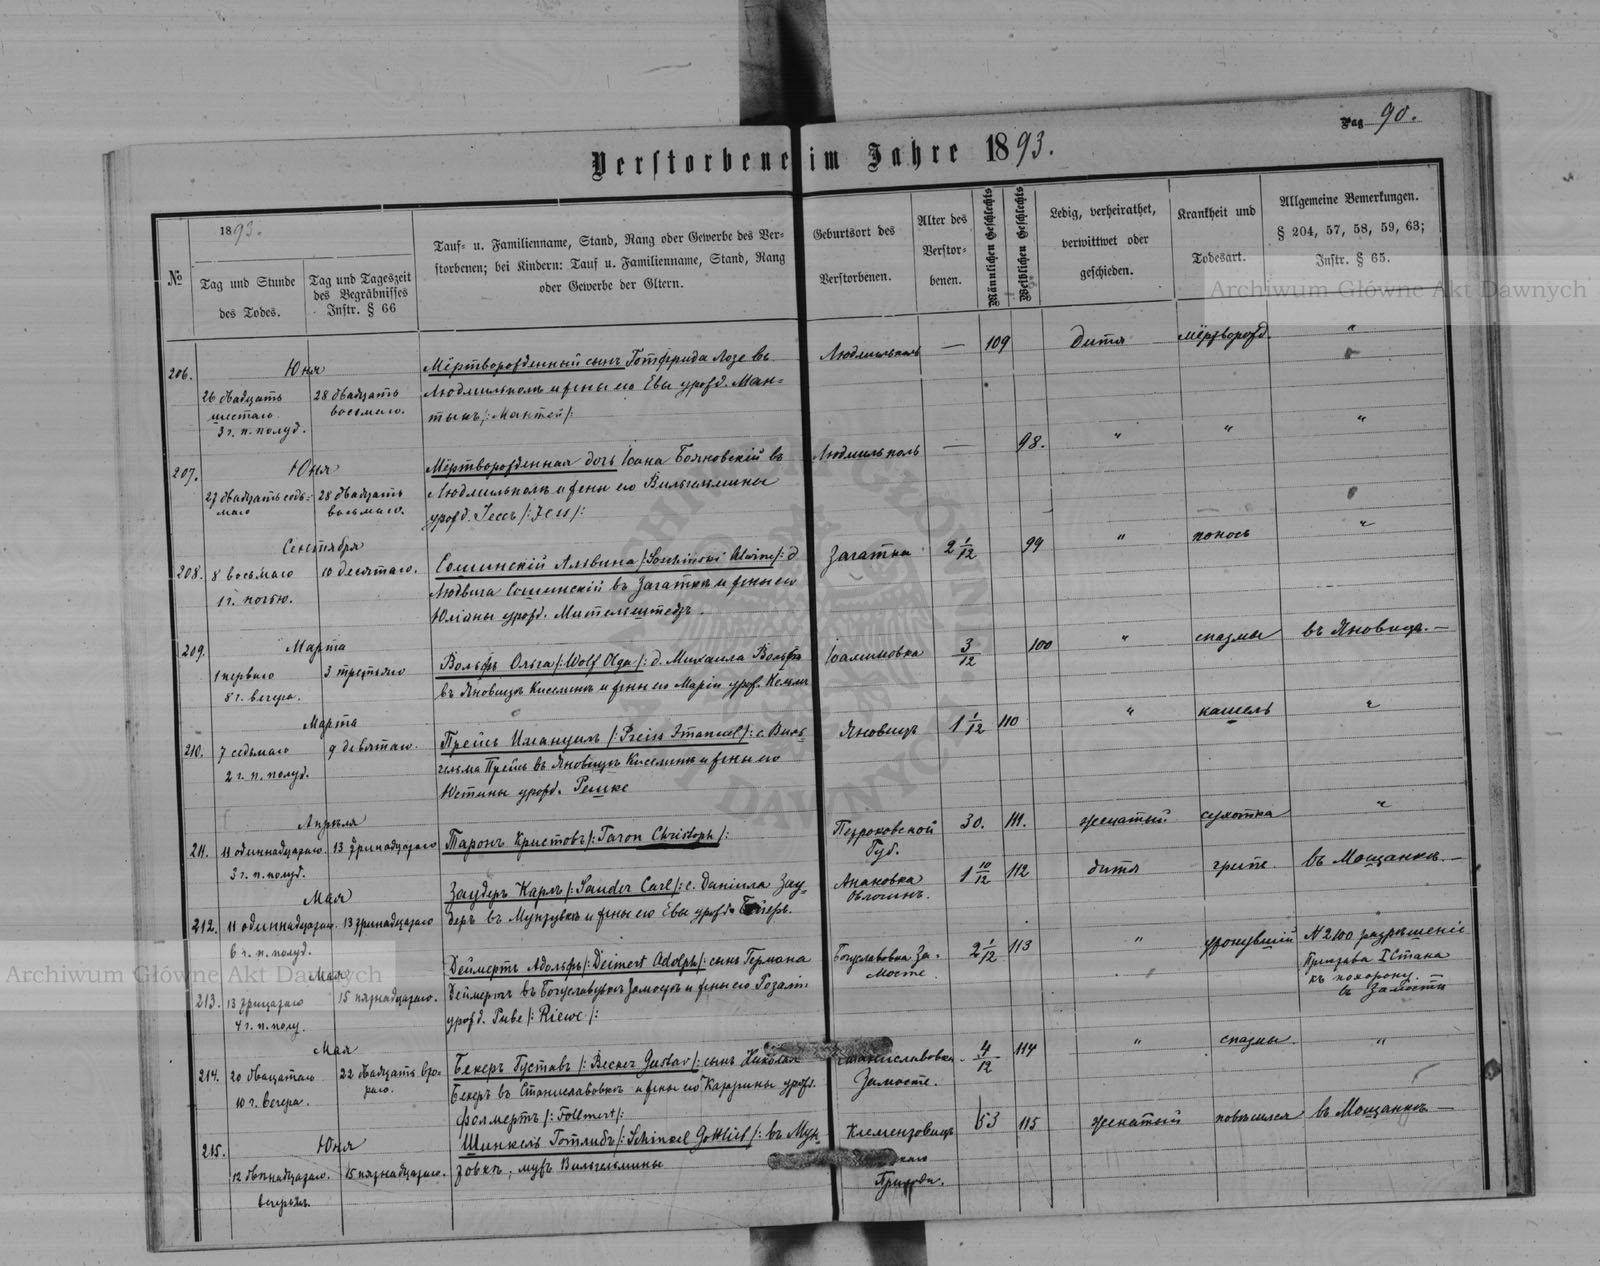 Pag 90.
Verstorbene im Jahre 1893.
№
1893.
Tag und Stunde
des Todes.
Tag und Tageszeit
des Begräbnisses
Instr. § 66
Tauf- u. Familienname, Stand, Rang oder Gewerbe des Ver-
storbenen; bei Kindern: Tauf u. Familienname, Stand, Rang
oder Gewerbe der Eltern.
Geburtsort des
Verstorbenen.
Alter des
Verstor-
benen.
Männlichen Geschlechts
Weiblichen Geschlechts
Ledig, verheirathet,
verwittwet oder
geschieden.
Krankheit und
Todesart.
Allgemeine Bemerkungen.
§ 204, 57, 58, 59, 63;
Instr. § 65.
Archiwum Główne Akt Dawnych
206.
Юня
26 двадцать
шестаго
3 г. п. полуд.
28 двадцать
восьмаго.
Мёртворожденный сынъ Готфрида Лозе въ
Людмильполь и жены его Евы урожд. Ман-
тынъ /: Мантей /:
Людмильполь — 109 дитя мёртворожд. "
207.
Юня
27 двадцать седь-
маго
28 двадцать
восьмаго.
Мёртворожденная дочь Іоана Бояновскій въ
Людмильполь и жены его Вильгельмины
урожд. Іессъ /: Jess /:
Людмильполь — 98. " " "
Сентября
208. 8 восьмаго
1 г. ночью.
10 десятаго.
Сошинскій Альвина /: Soschinski Alwine /: д
Людвига Сошинскій въ Загатки и жены его
Юліаны урожд. Мительштедъ.
Загатка 2 1/12 99 " поносъ "
209.
Марта
1 перваго
8 г. вечера.
3 третьяго
Вольфъ Ольга /: Wolf Olga /: д. Михаила Вольфъ
въ Яновицъ Киселинъ и жены его Маріи урож.
3/12 100 " спазмы въ Яновицъ. —
Марта
210. 7 седьмаго
2 г. п. полуд.
9 девятаго.
Прейсъ Имануилъ /: Preiss Imanuel /: с. Виль-
гельма Прейсъ въ Яновицъ Киселинъ и жены его
Юстины урожд. Решке
Яновицъ 1 1/12 110 " кашель "
Апрѣля
211. 11 одиннадцатаго.
3 г. п. полуд.
13 тринадцатаго
Таронъ Христовъ /: Taron Christoph /:
Петроковской
Губ.
30. 111. женатый сухотка "
Мая
212. 11 одиннадцатаго.
6 г. п. полуд.
13 тринадцатаго
Заудеръ Карлъ /: Sauder Carl /: с. Даніила Зау-
деръ въ и жены его Евы урожд.
Анановка
1 10/12 112 дитя грипе. въ Мощанкъ. —
Мая
213. 13
4 г. п. полу.
15 пятнадцатаго.
Деймертъ Адольфъ /: Deimert Adolph /: сынъ Германа
Деймертъ въ Богуславовкъ Замостъ и жены его Розаліи
урожд. Риве /: Riewe /:
Богуславовка За-
мостье
2 1/12 113 " утонувшій
N 2100 разрѣшеніе
Пристава 1 Стана
къ похорону.
въ Замости
Archiwum Główne Akt Dawnych
Мая
214. 20 двацатаго
10 г. вечера.
22 двадцать вто-
раго.
Бекеръ Густавъ /: Becker Gustav /: сынъ Николая
Бекеръ въ Станиславовкъ и жены его Катрины урожд.
Фолмертъ /: Follmert /:
Станиславовка
Замостье.
4/12 114 " спазмы. "
215.
Юня
12 двѣнадцатаго.
вечеромъ.
15 пятнадцатаго.
Шинкель Готлибъ /: Schinkel Gottlieb /: въ Мун-
зовкъ, мужъ Вильгельмины
53 115 женатый повѣсился въ Мощанкъ —
ARCHIWUM GŁÓWNE AKT DAWNYCH